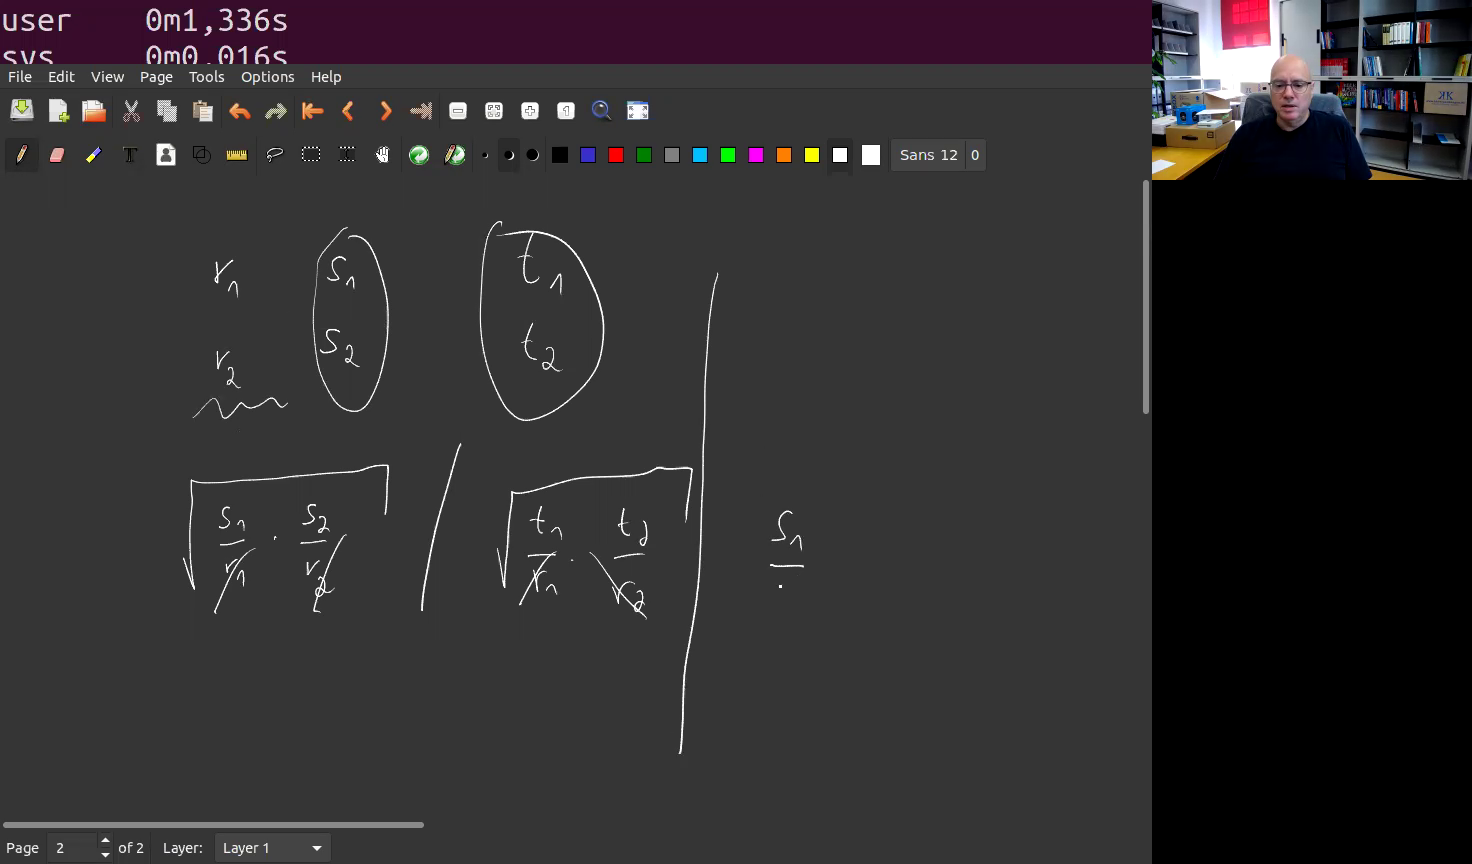 user 0m1,336s
sys 0m0,016s
File Edit View Page Tools Options Help
Sans 12 0
r1 s1 t1
r2 s2 t2
s1/r1 · s2/r2 / t1/r1 · t2/r2
s1
Page 2 of 2 Layer: Layer 1